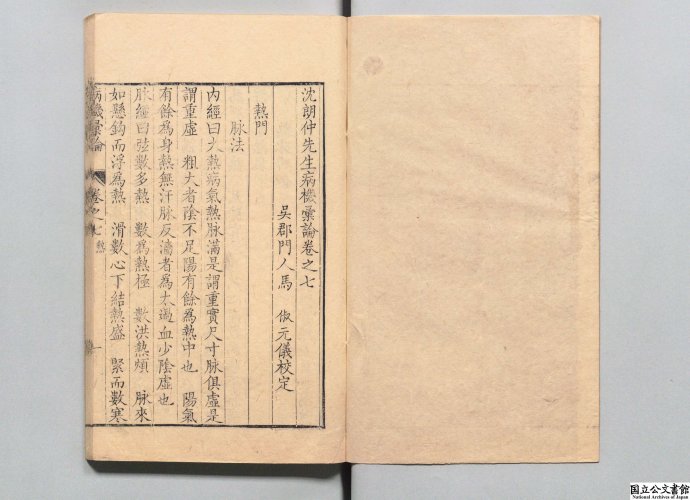 沈朗仲先生病機彙論卷之七
吳郡門人馬　俶元儀校定
熱門
脉法
內經曰大熱病氣熱脉滿是謂重實尺寸脉俱虛是
謂重虛　粗大者陰不足陽有餘為熱中也　陽氣
有餘為身熱無汗脉反濇者為太過血少陰虛也
脉經曰弦數多熱　數為熱極　數洪熱煩　脉來
如懸鈎而浮為熱　滑數心下結熱盛　緊而數寒
病機彙論　卷之七　熱　一
国立公文書館
National Archives of Japan